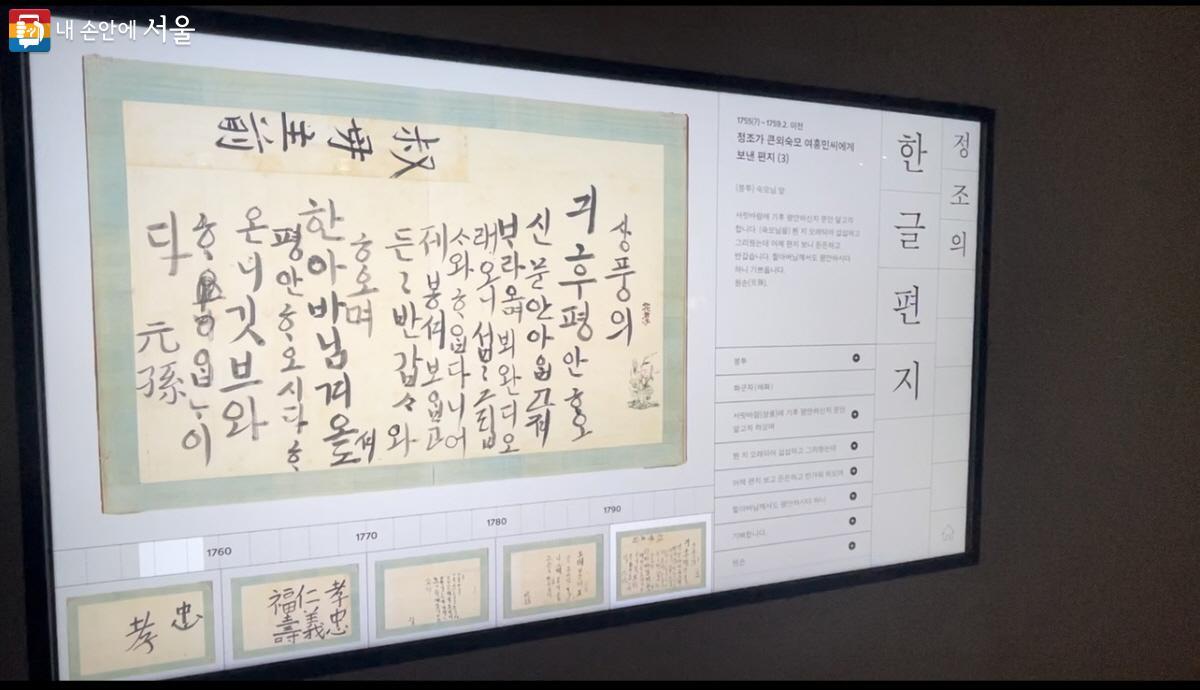 내 손안에 서울
叔母主前
상풍의
긔후평안ᄒᆞ오
신문안아ᄋᆞᆸ고져
ᄇᆞ라오며 뵈완디오
래오니 섭섭 그립ᄉᆞᆸ
ᄉᆞ와 ᄒᆞᄋᆞᆸ다니 어
제 봉셔 보ᄋᆞᆸ고
든든 반갑ᄉᆞ와
ᄒᆞ오며
한아바님겨오셔
도 평안ᄒᆞ오시다 ᄒᆞ
온니 깃브와
ᄒᆞᄋᆞᆸᄂᆞ이
다
元孫
1755(?)~1759.2. 이전
정조가 큰외숙모 여흥민씨에게
보낸 편지 (3)
(봉투) 숙모님 앞
서릿바람에 기후 평안하신지 문안 알고자
합니다. (숙모님을) 뵌 지 오래되어 섭섭하고
그리웠는데 어제 편지 보니 든든하고
반갑습니다. 할아버님께서도 평안하시다
하니 기쁘옵니다.
원손(元孫).
봉투
서릿바람(상풍)에 기후 평안하신지 문안
알고자 하오며
뵌 지 오래되어 섭섭하고 그리웠는데
어제 편지 보고 든든하고 반가워 하오며
할아버님께서도 평안하시다 하니
기뻐합니다.
원손
정조의
한글편지
1760
1770
1780
1790
忠
孝
孝忠
仁義
福壽